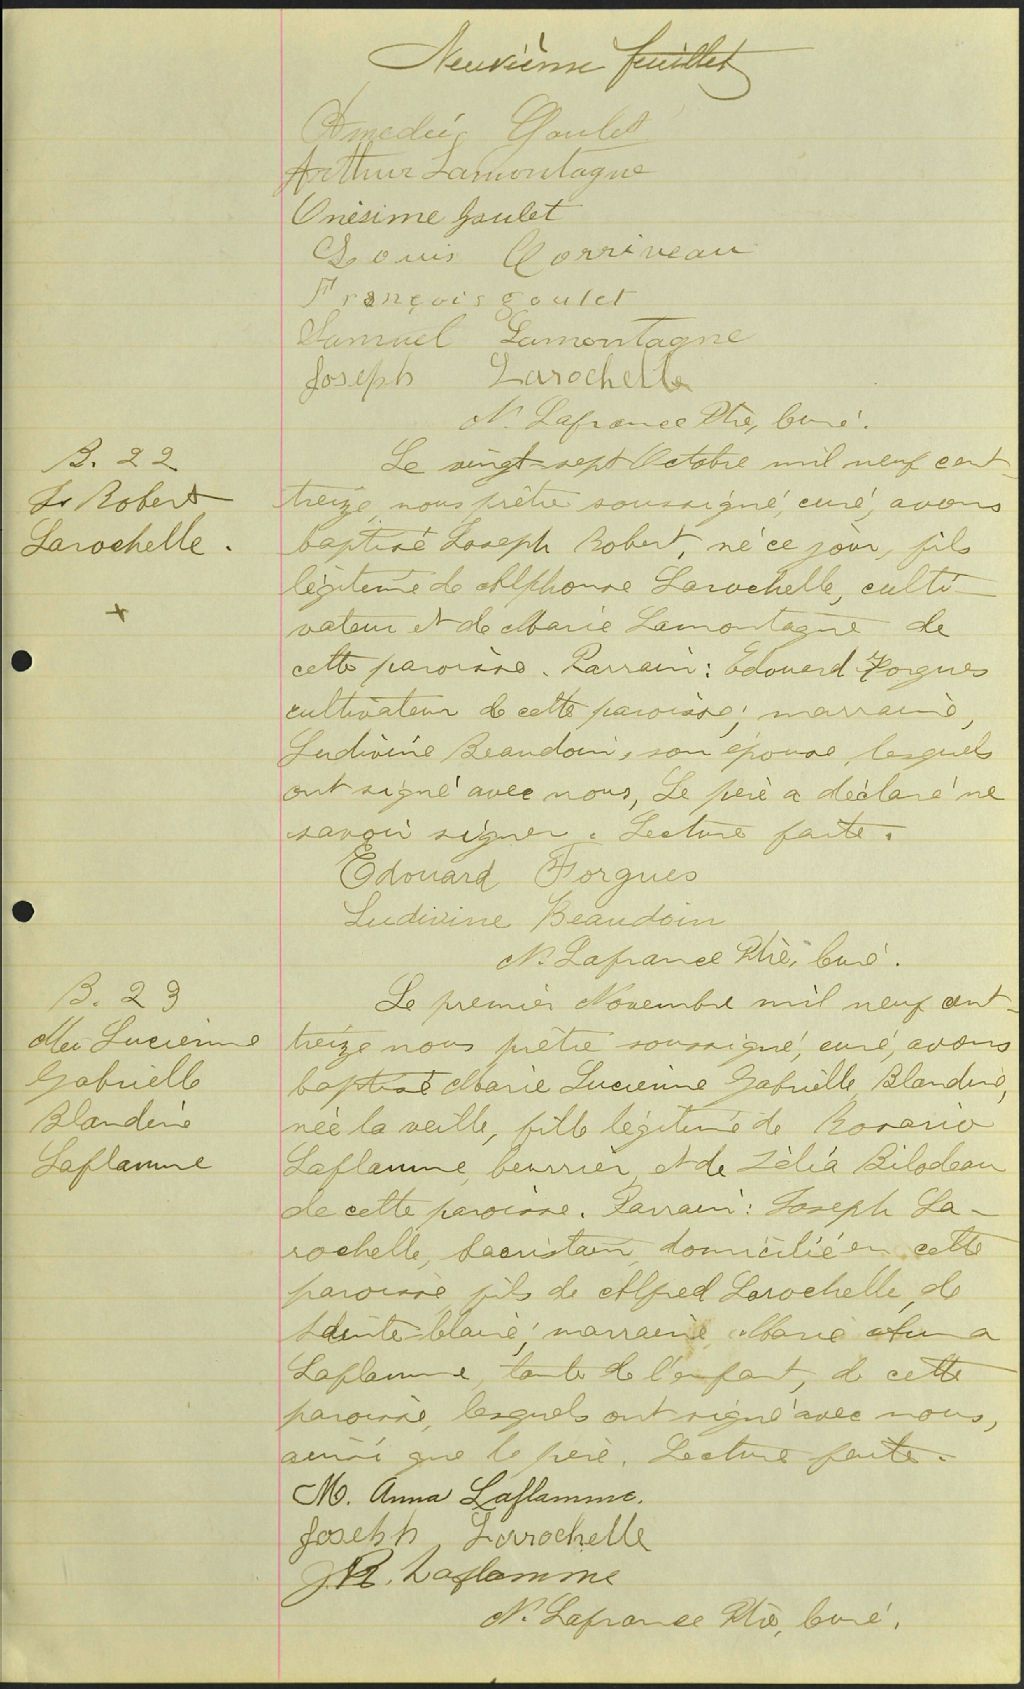 Neuvième feuillet
Amedée Goulet
Arthur Lamontagne
Onésime Goulet
Louis Corriveau
François goulet
Samuel Lamontagne
Joseph Larochelle
N. Lafrance Ptre, Curé.
B. 22
Js Robert
Larochelle.
+
Le vingt-sept Octobre mil neuf cent
treize, nous prêtre soussigné, curé, avons
baptisé Joseph Robert, né ce jour, fils
légitime de Alphonse Larochelle, culti-
vateur et de Marie Lamontagne de
cette paroisse. Parrain: Edouard Forgues
cultivateur de cette paroisse; marraine,
Ludivine Beaudoin, son épouse, lesquels
ont signé avec nous, Le père a déclaré ne
savoir signer. Lecture faite.
Edouard Forgues
Ludivine Beaudoin
N. Lafrance Ptre, Curé.
B. 23
Mie Lucienne
Gabrielle
Blandine
Laflamme
Le premier Novembre mil neuf cent-
treize nous prêtre soussigné, curé, avons
baptisé Marie Lucienne Gabrielle, Blandine,
née la veille, fille légitime de Rosario
Laflamme, beurrier, et de Zélia Bilodeau
de cette paroisse. Parrain: Joseph La-
rochelle, Sacristain, domicilié en cette
paroisse, fils de Alfred Larochelle, de
Sainte-Claire; marraine, Marie Anna
Laflamme, tante de l'enfant, de cette
paroisse, lesquels ont signé avec nous,
ainsi que le père. Lecture faite.
M. Anna Laflamme.
Joseph Larochelle
J R. Laflamme
N. Lafrance Ptre, Curé.